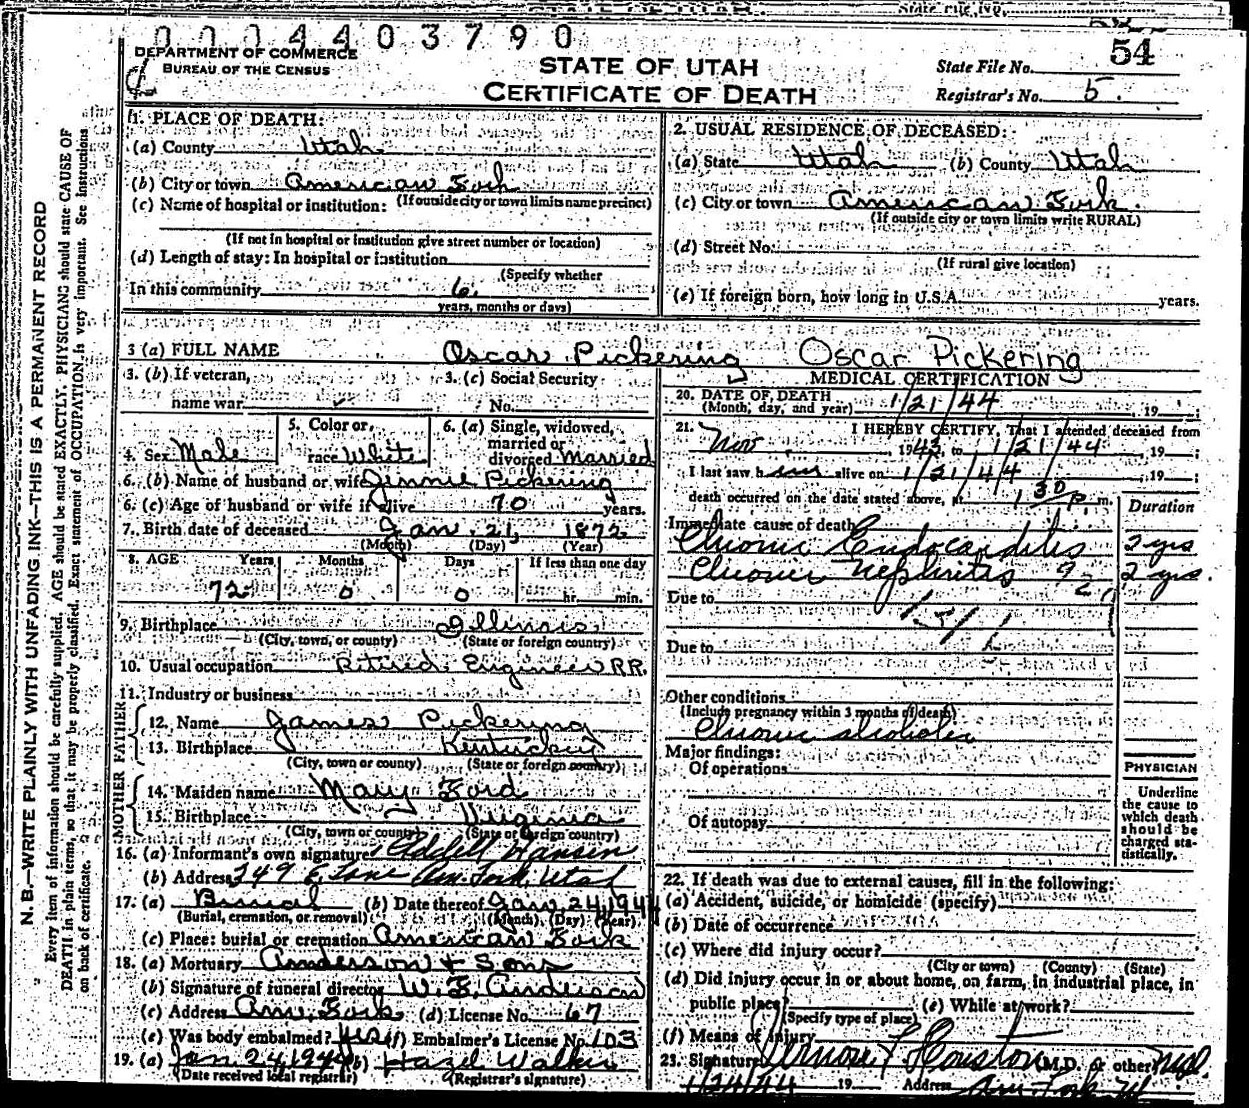 0 0 4 4 0 3 7 9 0
DEPARTMENT OF COMMERCE
BUREAU OF THE CENSUS
STATE OF UTAH
CERTIFICATE OF DEATH
54
State File No.
Registrar's No. 5.
N. B.—WRITE PLAINLY WITH UNFADING INK—THIS IS A PERMANENT RECORD
Every item of information should be carefully supplied. AGE should be stated EXACTLY. PHYSICIANS should state CAUSE OF
DEATH in plain terms, so that it may be properly classified. Exact statement of OCCUPATION is very important. See instructions
on back of certificate.
1. PLACE OF DEATH:
(a) County Utah
(b) City or town American Fork
(If outside city or town limits name precinct)
(c) Name of hospital or institution:
(If not in hospital or institution give street number or location)
(d) Length of stay: In hospital or institution
(Specify whether
In this community 6
years, months or days)
2. USUAL RESIDENCE OF DECEASED:
(a) State Utah (b) County Utah
(c) City or town American Fork.
(If outside city or town limits write RURAL)
(d) Street No.
(If rural give location)
(e) If foreign born, how long in U.S.A. years.
3 (a) FULL NAME Oscar Pickering Oscar Pickering
3. (b) If veteran,
name war
3. (c) Social Security
No.
4. Sex Male
5. Color or
race White
6. (a) Single, widowed,
married or
divorced Married
6. (b) Name of husband or wife Jennie Pickering
6. (c) Age of husband or wife if alive 70 years.
7. Birth date of deceased Jan. 21, 1872
(Month) (Day) (Year)
8. AGE Years Months Days If less than one day
72 0 0 hr. min.
9. Birthplace Illinois
(City, town, or county) (State or foreign country)
10. Usual occupation Retired Engineer RR.
11. Industry or business
FATHER
12. Name James Pickering
13. Birthplace Kentucky
(City, town or county) (State or foreign country)
MOTHER
14. Maiden name Mary Ford
15. Birthplace Virginia
(City, town or county) (State or foreign country)
16. (a) Informant's own signature Hansen
(b) Address 349 E Lane Am. Fork, Utah
17. (a) Burial (b) Date thereof Jan 24, 1944
(Burial, cremation, or removal) (Month) (Day) (Year)
(c) Place: burial or cremation American Fork
18. (a) Mortuary Anderson & Sons
(b) Signature of funeral director W. F. Anderson
(c) Address Am. Fork (d) License No. 67
(e) Was body embalmed? yes (f) Embalmer's License No. 103
19. (a) Jan 24, 1944 (b) Hazel Walker
(Date received local registrar) (Registrar's signature)
MEDICAL CERTIFICATION
20. DATE OF DEATH
(Month, day, and year) 1/21/44, 19
21. I HEREBY CERTIFY, That I attended deceased from
Nov. 1943, to 1/21/44, 19 ;
I last saw him alive on 1/21/44, 19 ;
death occurred on the date stated above, at 1 30 P. m.
Duration
Immediate cause of death
Chronic Endocarditis 2 yrs
Chronic Nephritis 2 yrs.
Due to
Due to
Other conditions
(Include pregnancy within 3 months of death)
Chronic alcoholic
Major findings:
Of operations
Of autopsy
PHYSICIAN
Underline
the cause to
which death
should be
charged sta-
tistically.
22. If death was due to external causes, fill in the following:
(a) Accident, suicide, or homicide (specify)
(b) Date of occurrence
(c) Where did injury occur?
(City or town) (County) (State)
(d) Did injury occur in or about home, on farm, in industrial place, in
public place? (e) While at work?
(Specify type of place)
(f) Means of injury
23. Signature Vernon F Houston (M.D. or other) M.D.
1/24/44 19 Address Am Fork Ut